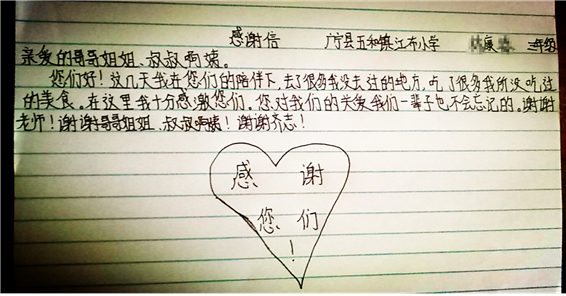 感谢信 广宁县五和镇江布小学 康 三年级
亲爱的哥哥姐姐、叔叔啊姨。
您们好！这几天我在您们的陪伴下，去了很多我没去过的地方，吃了很多我所没吃过
的美食。在这里我十分感激您们。您对我们的关爱我们一辈子也不会忘记的。谢谢
老师！谢谢哥哥姐姐、叔叔啊姨！谢谢齐志！
感 谢
您 们
！